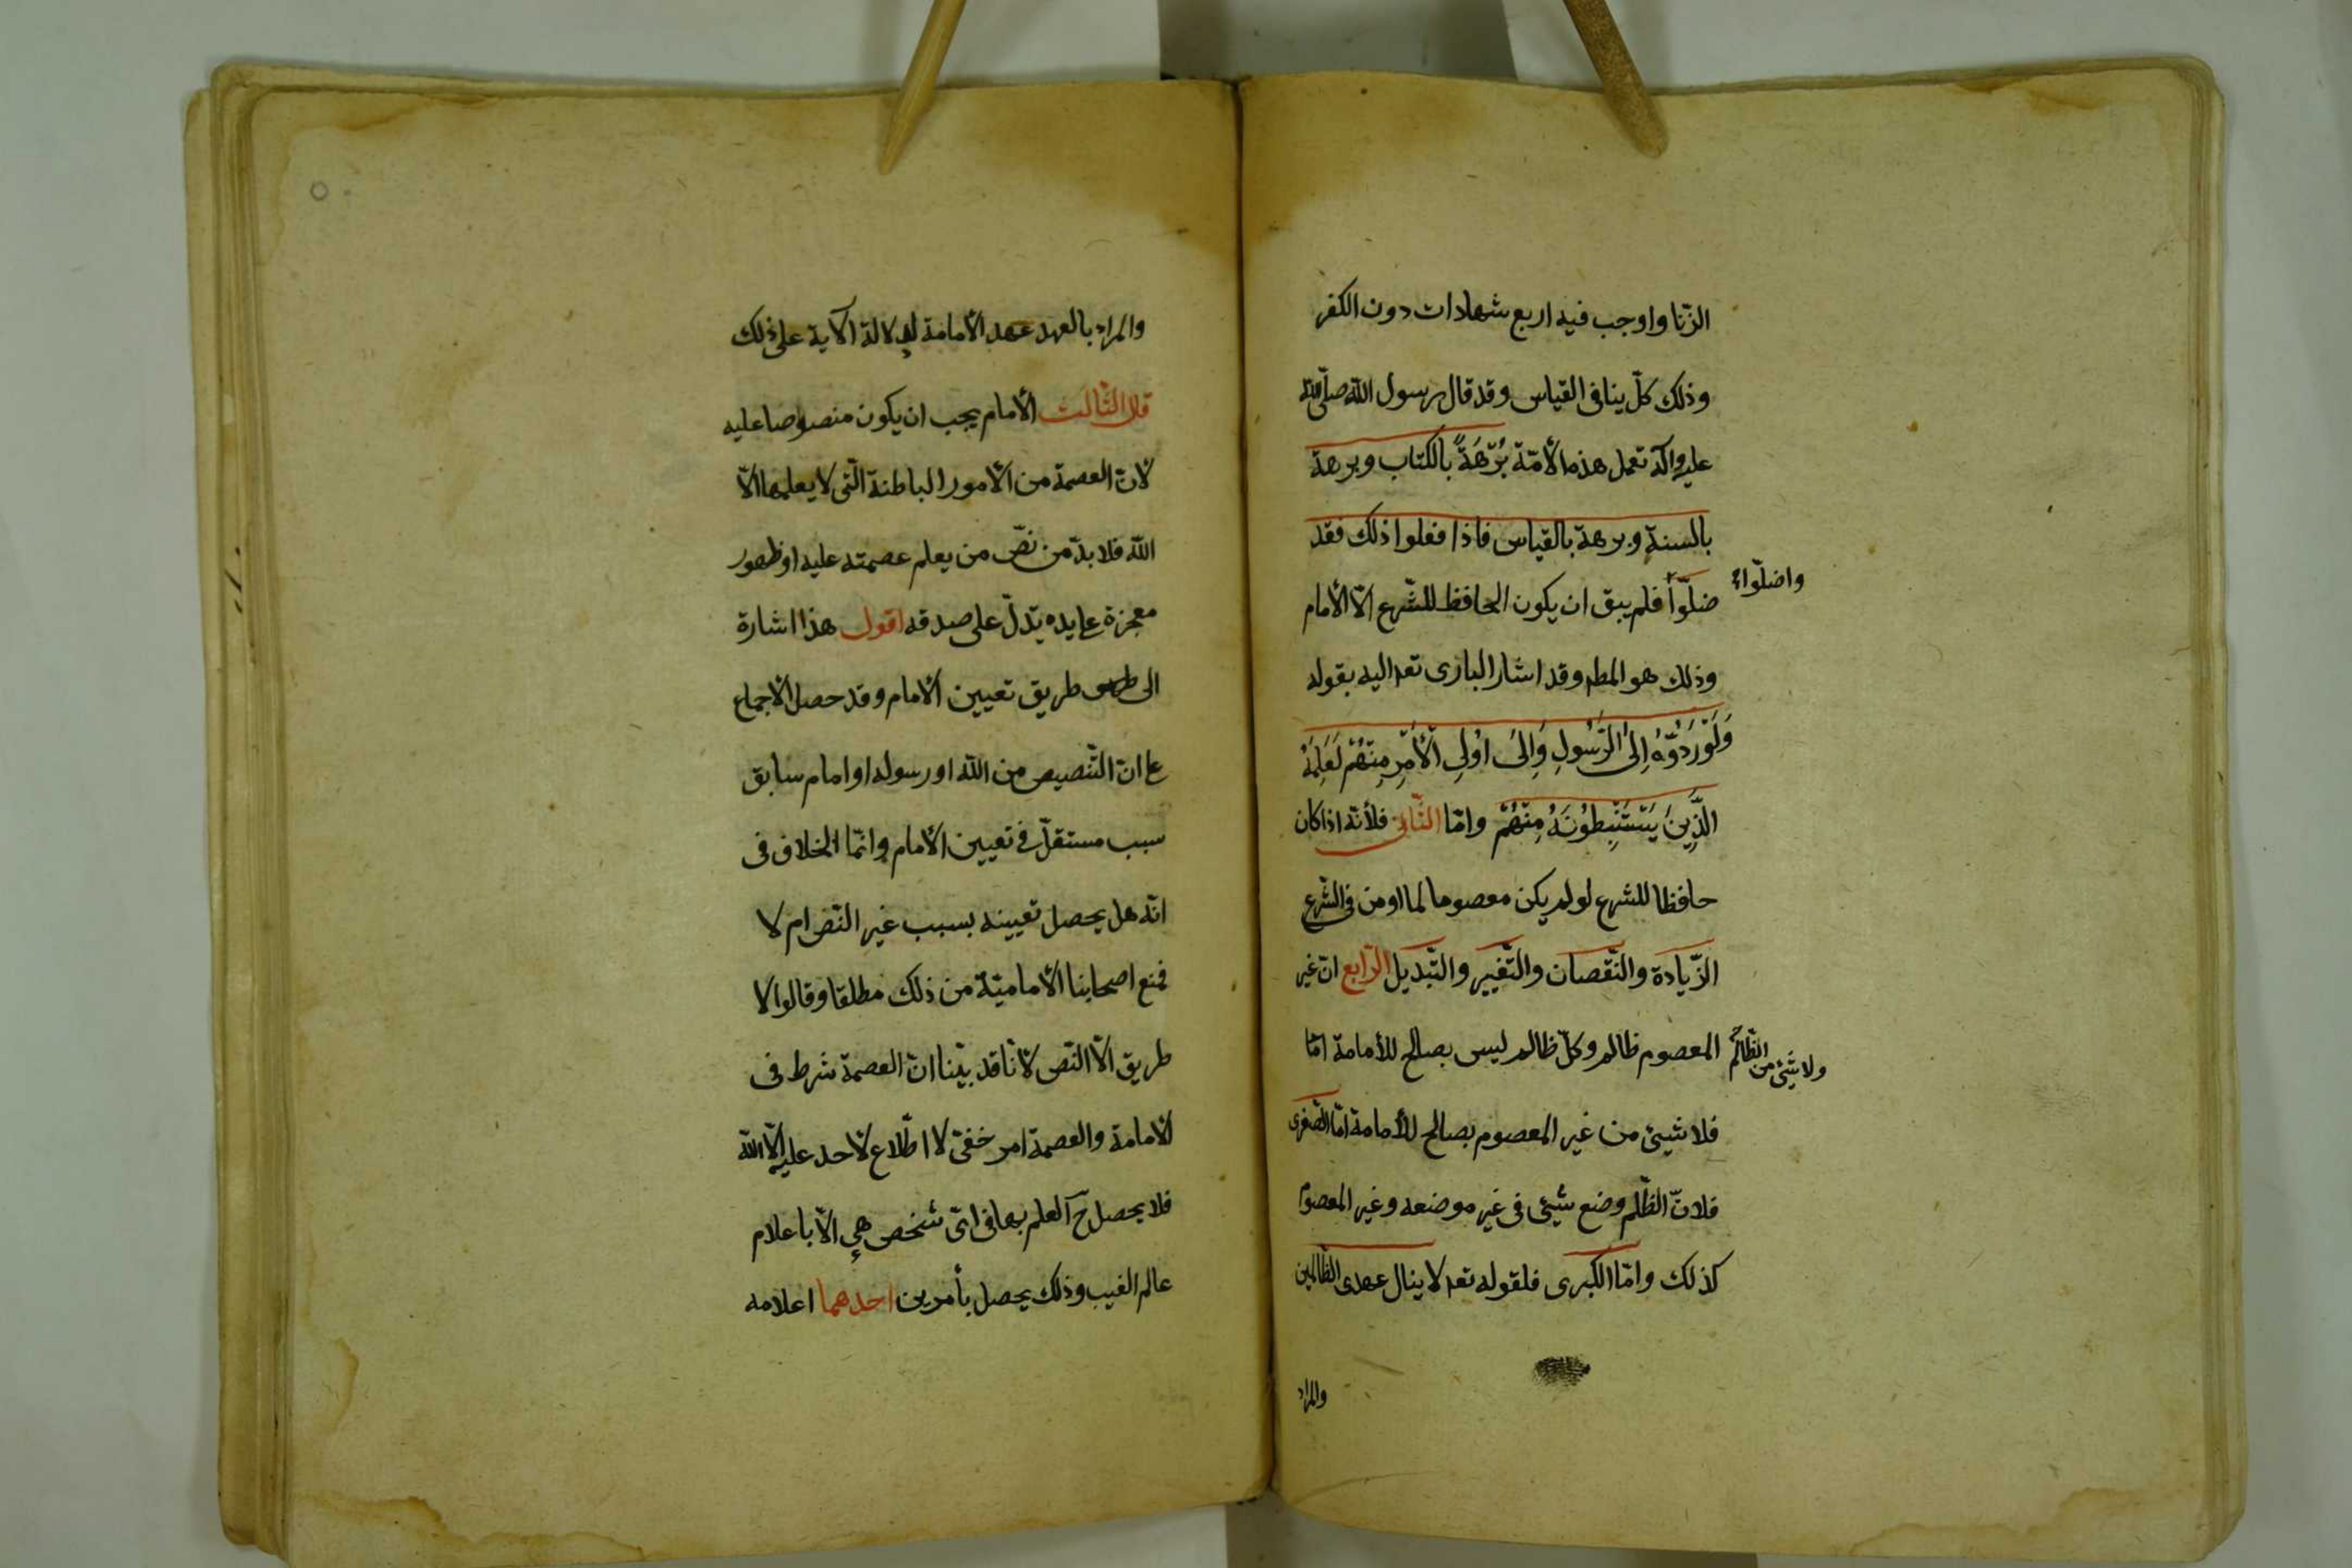 الزّنا واوجب فيه اربع شهادات دون الكفر
وذلك كلّ ينافى القياس وقد قال رسول الله صلّى الله
عليه وآله تعمل هذه الأمّة بُرْهَةً بالكتاب وبرهة
بالسنة وبرهة بالقياس فاذا فعلوا ذلك فقد
واضلّوا
ضلّوا فلم يبق ان يكون الحافظ للشّرع الّا الأمام
وذلك هو المطه وقد اشار البارى تعه اليه بقوله
وَلَوْ رَدُّوْهُ اِلىَ الرَّسُولِ وَاِلىَ اُولِى الْأَمْرِ مِنْهُمْ لَعَلِمَهُ
الَّذِينَ يَسْتَنْبِطُونَهُ مِنْهُمْ وامّا الثّانى فلأنّه اذا كان
حافظا للشرع لو لم يكن معصوما لما اومن فى الشّرع
الزّيادة والنّقصان والتّغيير والتّبديل الرّابع انّ غير
المعصوم ظالم وكلّ ظالم ليس بصالح للأمامة امّا
ولا شئ من الظّالم
فلا شيئ من غير المعصوم بصالح للأمامة امّا الصّغرى
فلانّ الظّلم وضع شيئ فى غير موضعه وغير المعصوم
كذلك وامّا الكبرى فلقوله تعه لا ينال عهدى الظّالمين
والمراد
والمراد بالعهد عهد الأمامة لدلالة الآية على ذلك
قال الثّالث الأمام يجب ان يكون منصوصا عليه
لانّ العصمة من الأمور الباطنة الّتى لا يعلمها الّا
الله فلا بدّ من نصّ من يعلم عصمته عليه او ظهور
معجزة على يده يدلّ على صدقه اقول هذا اشارة
الى طريق تعيين الامام وقد حصل الأجماع
على انّ التّنصيص من الله او رسوله او امام سابق
سبب مستقلّ فى تعيين الأمام وانّما الخلاف فى
انّه هل يحصل تعيينه بسبب غير النّص ام لا
فمنع اصحابنا الأماميّة من ذلك مطلقا وقالوا لا
طريق الّا النّص لأنّا قد بيّنا انّ العصمة شرط فى
الأمامة والعصمة امر خفىّ لا اطّلاع لأحد عليه الّا الله
فلا يحصل ح العلم بها فى اىّ شخص هى الّا باعلام
عالم الغيب وذلك يحصل بأمرين احدهما اعلامه